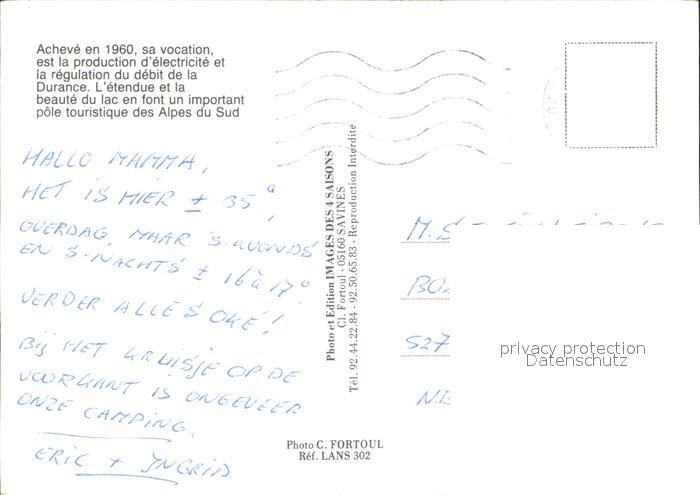 Achevé en 1960, sa vocation,
est la production d'électricité et
la régulation du débit de la
Durance. L'étendue et la
beauté du lac en font un important
pôle touristique des Alpes du Sud
HALLO MAMMA,
HET IS HIER ± 35°,
OVERDAG, MAAR 'S-AVONDS
EN S-NACHTS ± 16 à 17°
VERDER ALLES OKÉ!
BIJ HET KRUISJE OP DE
VOORKANT IS ONGEVEER
ONZE CAMPING.
ERIC + YNGRID
Photo et Edition IMAGES DES 4 SAISONS
Cl. Fortoul - 05160 SAVINES
Tél. 92.44.22.84 - 92.50.65.83 - Reproduction Interdite
Photo C. FORTOUL
Réf. LANS 302
M.S
BO
527
NE
privacy protection
Datenschutz